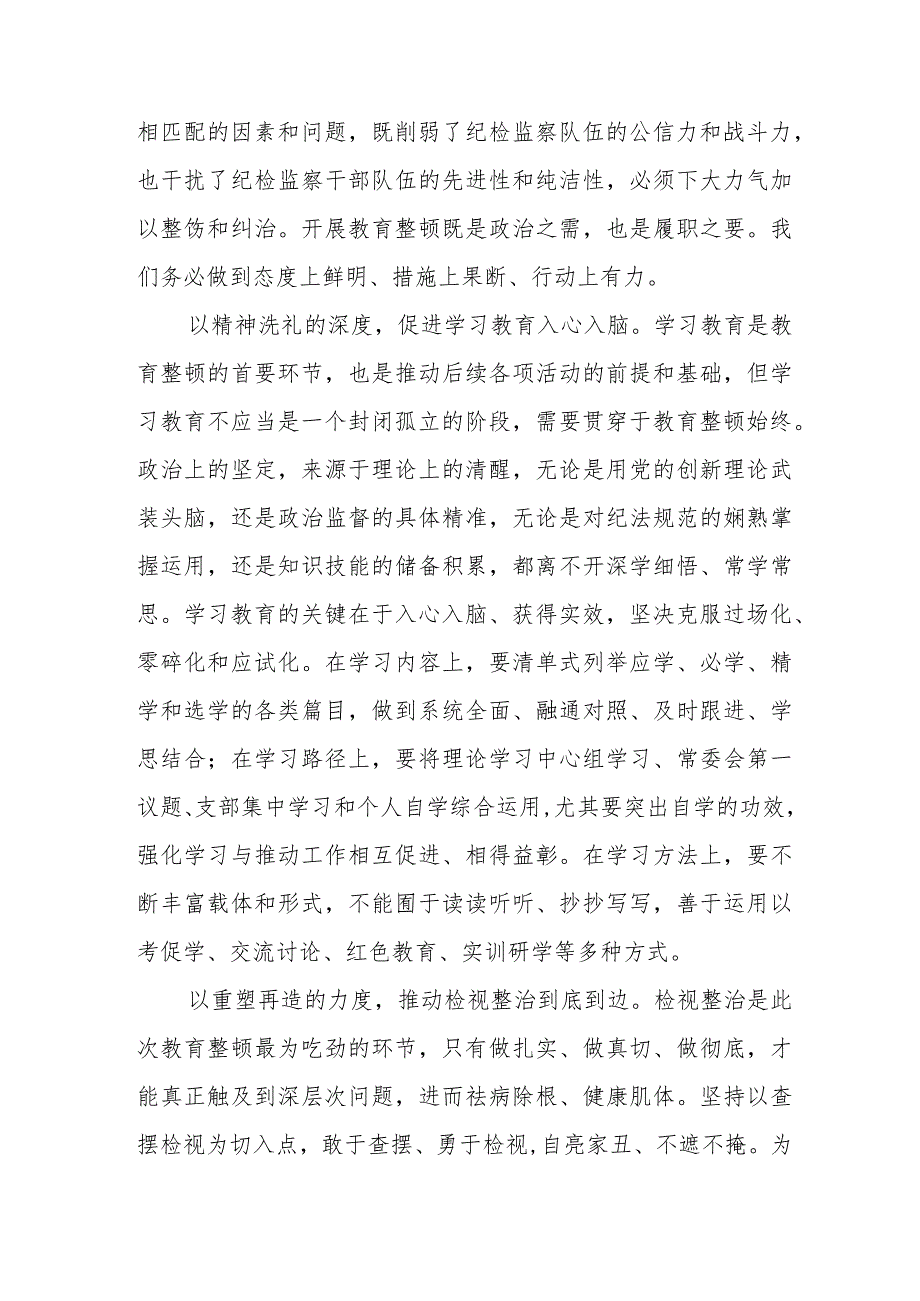 相匹配的因素和问题，既削弱了纪检监察队伍的公信力和战斗力，
也干扰了纪检监察干部队伍的先进性和纯洁性，必须下大力气加
以整饬和纠治。开展教育整顿既是政治之需，也是履职之要。我
们务必做到态度上鲜明、措施上果断、行动上有力。
以精神洗礼的深度，促进学习教育入心入脑。学习教育是教
育整顿的首要环节，也是推动后续各项活动的前提和基础，但学
习教育不应当是一个封闭孤立的阶段，需要贯穿于教育整顿始终。
政治上的坚定，来源于理论上的清醒，无论是用党的创新理论武
装头脑，还是政治监督的具体精准，无论是对纪法规范的娴熟掌
握运用，还是知识技能的储备积累，都离不开深学细悟、常学常
思。学习教育的关键在于入心入脑、获得实效，坚决克服过场化、
零碎化和应试化。在学习内容上，要清单式列举应学、必学、精
学和选学的各类篇目，做到系统全面、融通对照、及时跟进、学
思结合；在学习路径上，要将理论学习中心组学习、常委会第一
议题、支部集中学习和个人自学综合运用,尤其要突出自学的功效，
强化学习与推动工作相互促进、相得益彰。在学习方法上，要不
断丰富载体和形式，不能囿于读读听听、抄抄写写，善于运用以
考促学、交流讨论、红色教育、实训研学等多种方式。
以重塑再造的力度，推动检视整治到底到边。检视整治是此
次教育整顿最为吃劲的环节，只有做扎实、做真切、做彻底，才
能真正触及到深层次问题，进而祛病除根、健康肌体。坚持以查
摆检视为切入点，敢于查摆、勇于检视,自亮家丑、不遮不掩。为